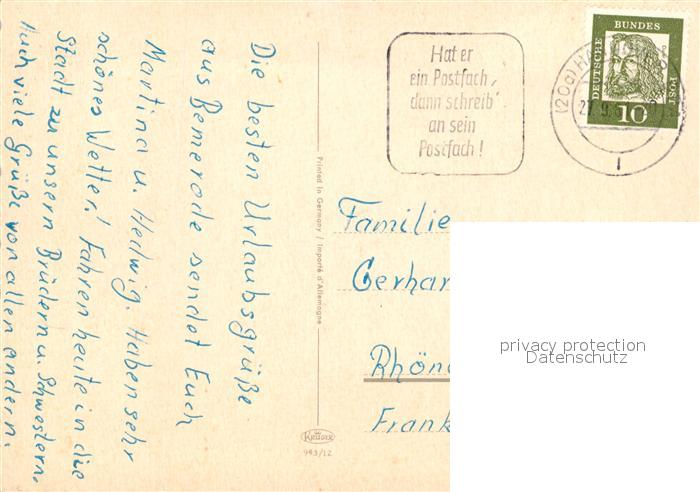 Die besten Urlaubsgrüße
aus Bemerode sendet Euch
Martina u. Hedwig. Haben sehr
schönes Wetter! Fahren heute in die
Stadt zu unsern Brüdern u. Schwestern.
Auch viele Grüße von allen andern.
Printed in Germany / Importé d'Allemagne
KRÜGER
993/12
Hat er
ein Postfach,
dann schreib'
an sein
Postfach!
(20a)
27.9.
DEUTSCHE
BUNDES
POST
10
Familie
Gerhar
Rhön
Frank
privacy protection
Datenschutz